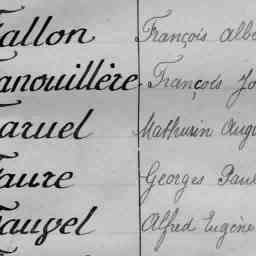 Fallon François Albe
anouillère François Jo
Faruel Mathurin Augu
Faure Georges Paul
Fauvel Alfred Eugène